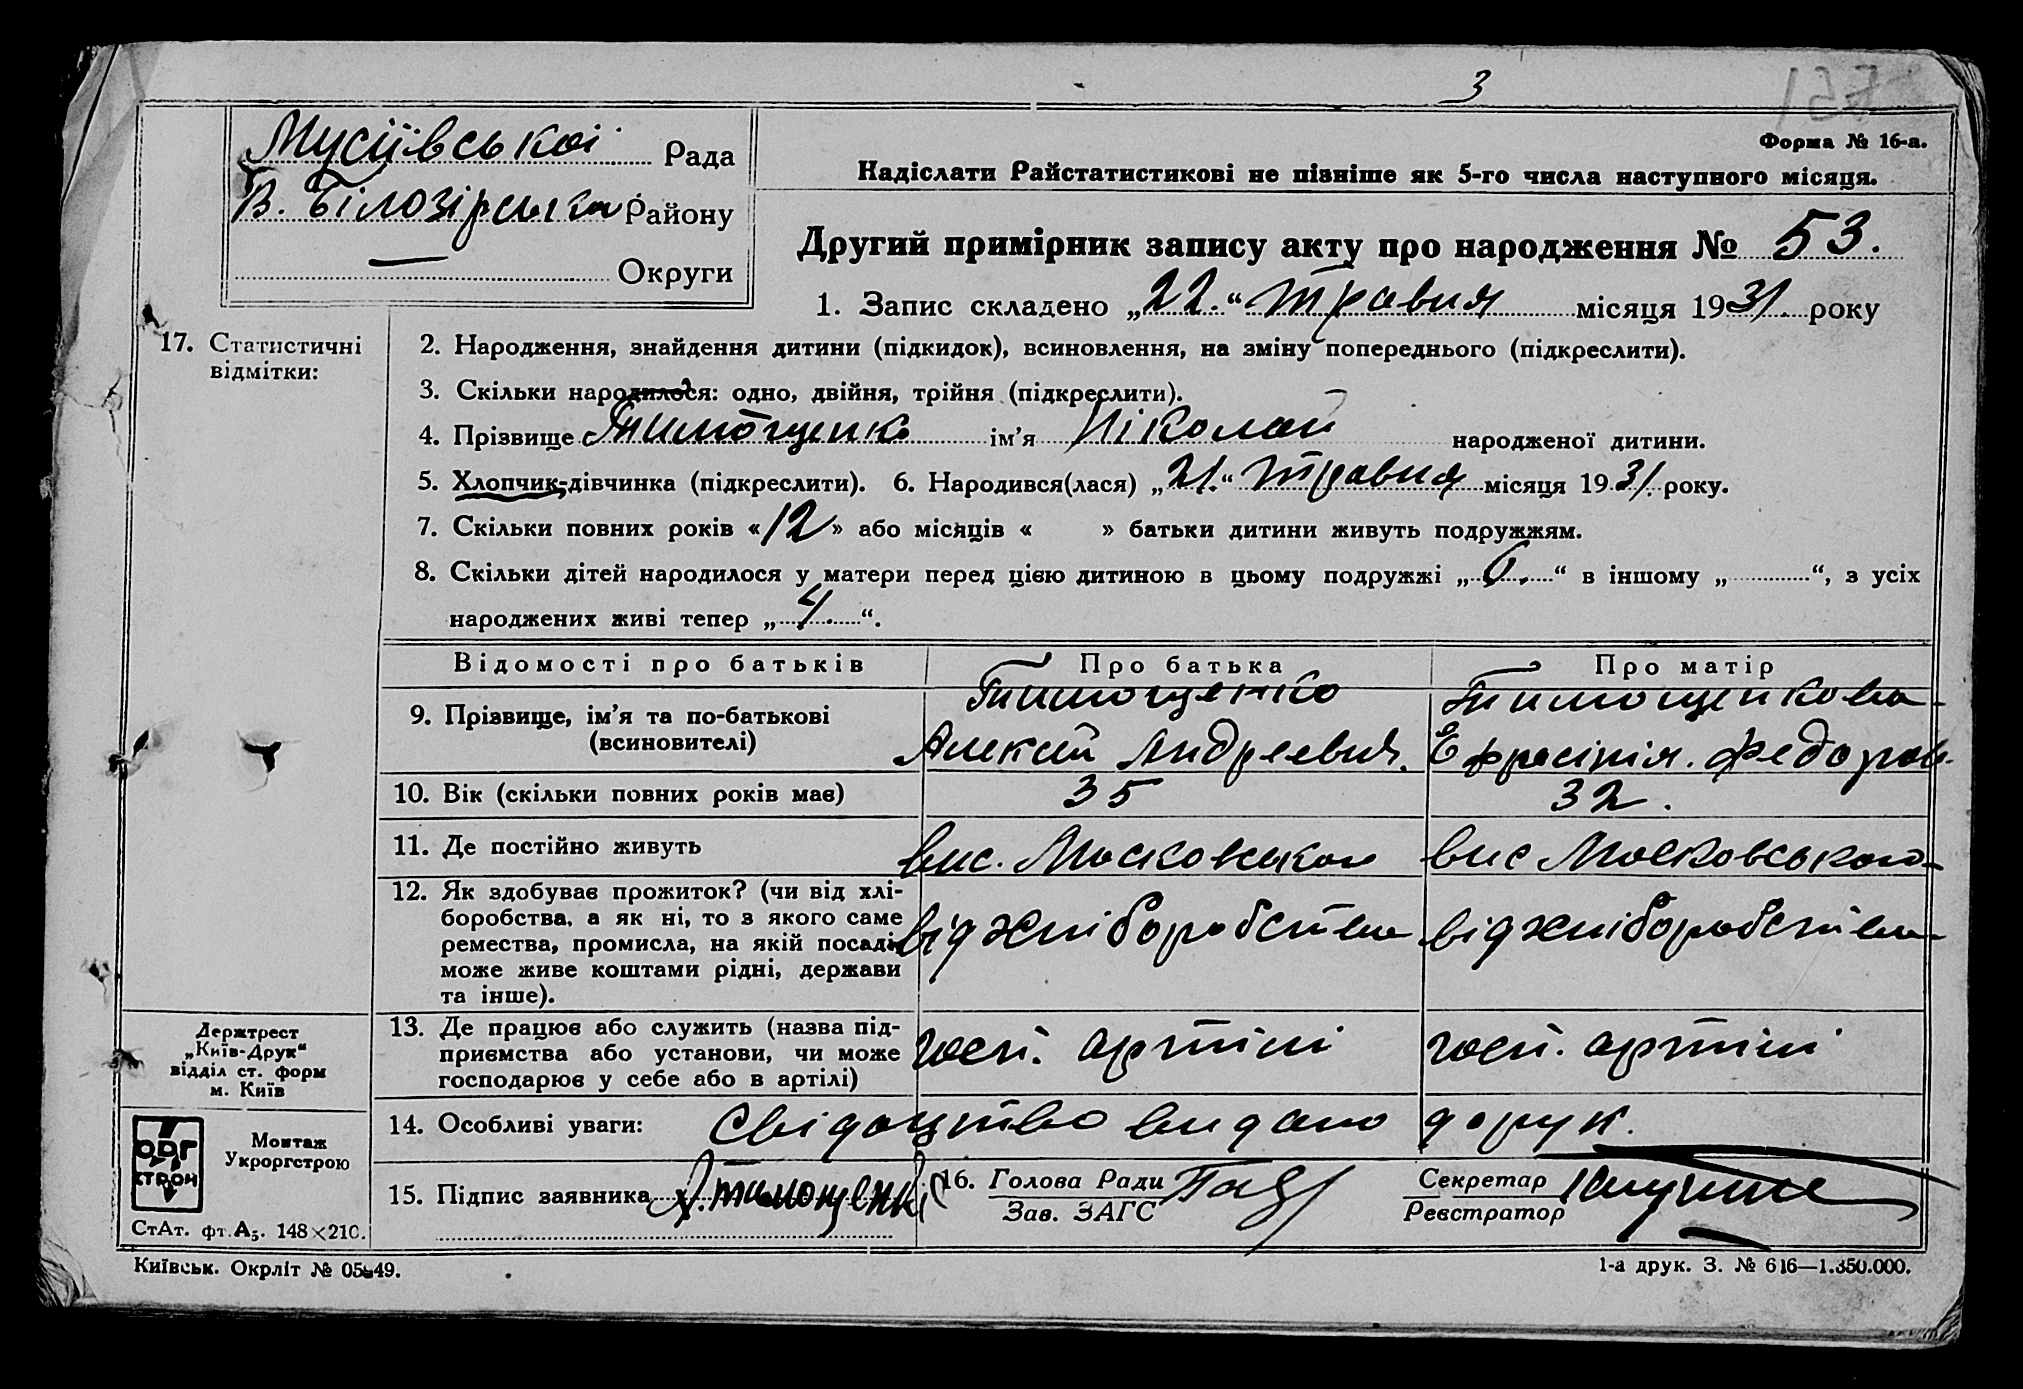 3
Мусіївської Рада
В. Білозірська Району
Округи
Форма № 16-а.
Надіслати Райстатистикові не пізніше як 5-го числа наступного місяця.
Другий примірник запису акту про народження № 53.
1. Запис складено „22.“ травня місяця 1931. року
17. Статистичні
відмітки:
2. Народження, знайдення дитини (підкидок), всиновлення, на зміну попереднього (підкреслити).
3. Скільки народилося: одно, двійня, трійня (підкреслити).
4. Прізвище Тимощенко ім’я Ніколай народженої дитини.
5. Хлопчик-дівчинка (підкреслити). 6. Народився(лася) „21.“ травня місяця 1931. року.
7. Скільки повних років «12» або місяців « » батьки дитини живуть подружжям.
8. Скільки дітей народилося у матери перед цією дитиною в цьому подружжі „6.“ в іншому „ “, з усіх
народжених живі тепер „4.“.
Відомості про батьків Про батька Про матір
9. Прізвище, ім’я та по-батькові
(всиновителі)
Тимощенко
Алексій Андреевич.
Тимощенкова
Ефросінія. Федоров.
10. Вік (скільки повних років має) 35 32.
11. Де постійно живуть вис. Московського вис Московського
12. Як здобуває прожиток? (чи від хлі-
боробства, а як ні, то з якого саме
ремества, промисла, на якій посаді,
може живе коштами рідні, держави
та інше).
від хліборобства від хліборобства
13. Де працює або служить (назва під-
приємства або установи, чи може
господарює у себе або в артілі)
госп. артілі госп. артілі
14. Особливі уваги: Свідоцтво видано дорук.
15. Підпис заявника А. Тимощенко
16. Голова Ради
Зав. ЗАГС
Секретар
Реєстратор
Держтрест
„Київ-Друк“
відділ ст. форм
м. Київ
ОРГ
СТРОЙ
Монтаж
Укроргстрою
СтАт. фт. А5. 148×210.
Київськ. Окрліт №
1-а друк. З. № 616—1.350.000.